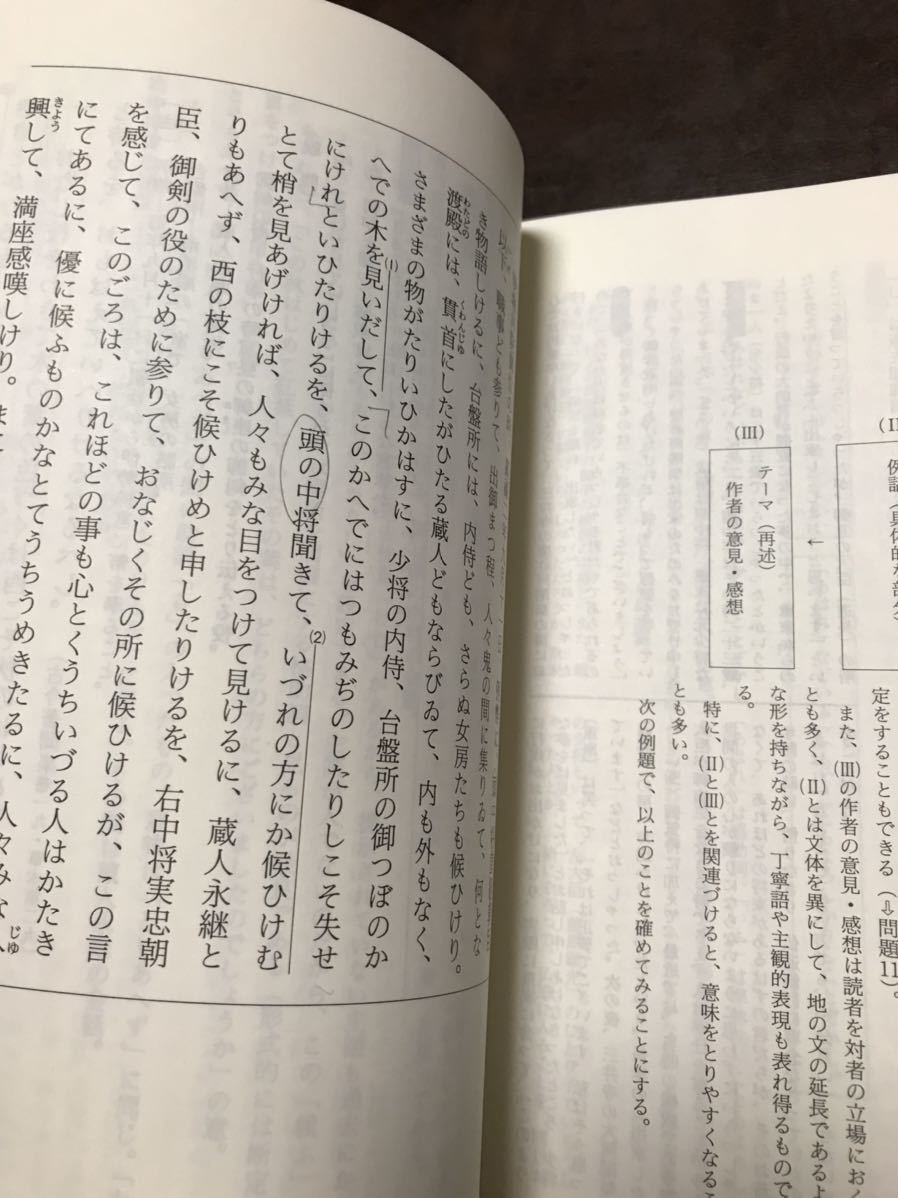 (Ⅲ)
テーマ（再述）
作者の意見・感想
←
定をすることもできる（⇩問題11）。
また、(Ⅲ)の作者の意見・感想は読者を対者の立場におく
とも多く、(Ⅱ)とは文体を異にして、地の文の延長であるよ
な形を持ちながら、丁寧語や主観的表現も表れ得るもので
る。
特に、(Ⅱ)と(Ⅲ)とを関連づけると、意味をとりやすくなる
とも多い。
次の例題で、以上のことを確めてみることにする。
以下、職事ども参りて、出御まつ程、人々鬼の間に集りゐて、何とな
き物語しけるに、台盤所には、内侍ども、さらぬ女房たちも候ひけり。
渡殿には、貫首にしたがひたる蔵人どもならびゐて、内も外もなく、
わたどの
くわんじゆ
さまざまの物がたりいひかはすに、少将の内侍、台盤所の御つぼのか
へでの木を見いだして、このかへでにはつもみぢのしたりしこそ失せ
(1)
にけれといひたりけるを、頭の中将聞きて、いづれの方にか候ひけむ
(2)
とて梢を見あげければ、人々もみな目をつけて見けるに、蔵人永継と
りもあへず、西の枝にこそ候ひけめと申したりけるを、右中将実忠朝
臣、御剣の役のために参りて、おなじくその所に候ひけるが、この言
を感じて、このごろは、これほどの事も心とくうちいづる人はかたき
にてあるに、優に候ふものかなとてうちうめきたるに、人々みな
興して、満座感嘆しけり。
きょう
じゆ